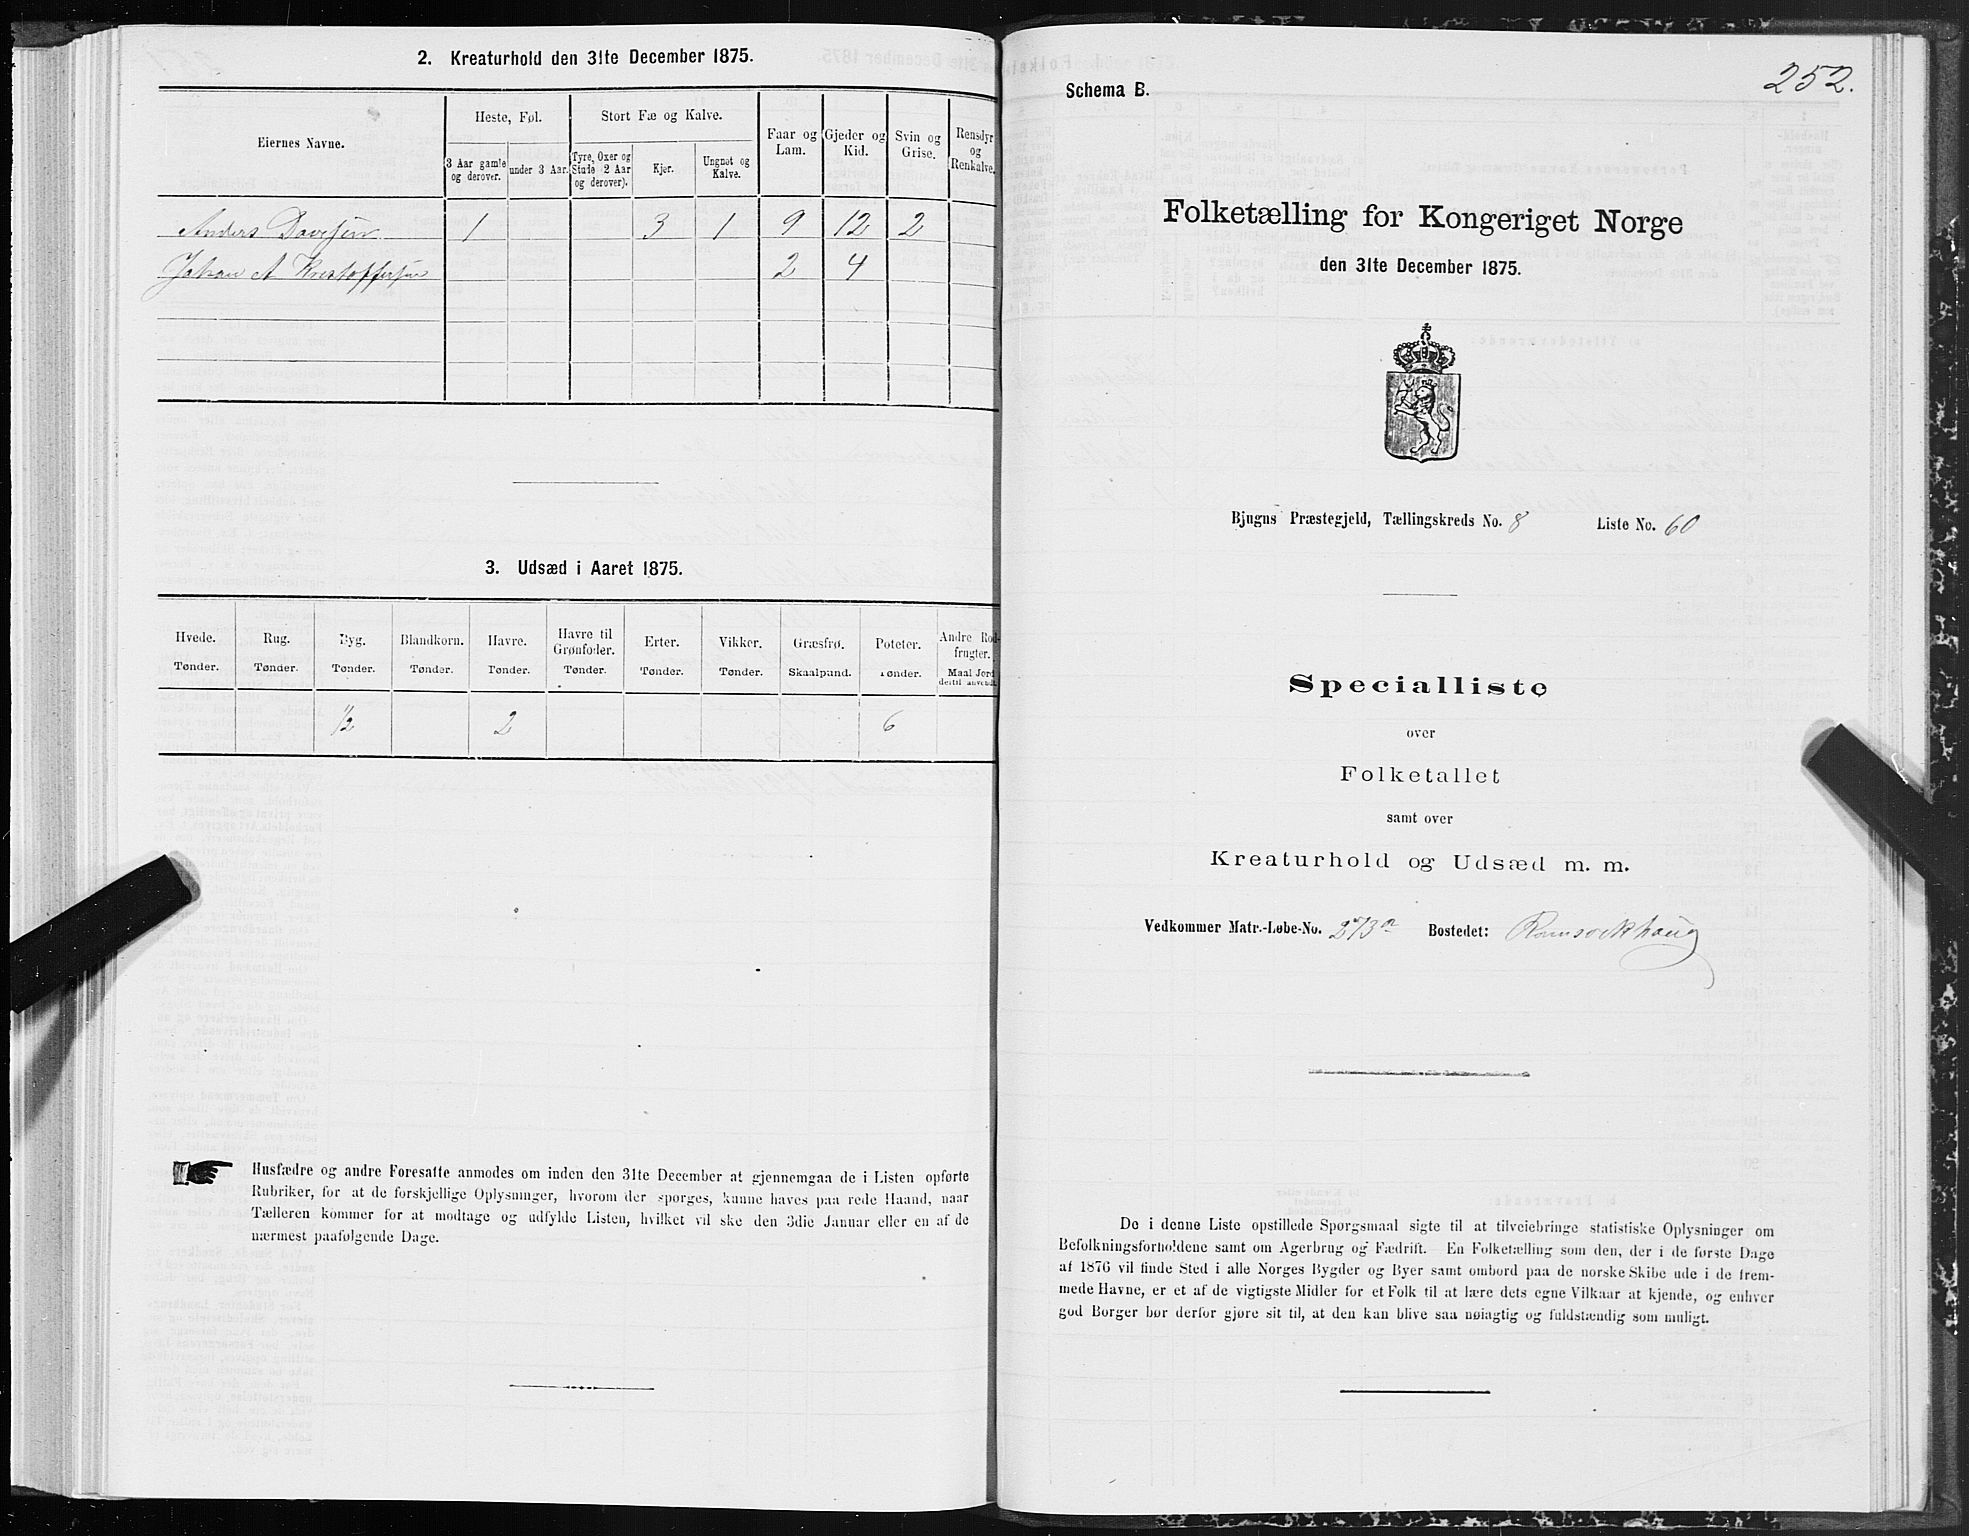 2. Kreaturhold den 31te December 1875.
Eiernes Navne.
Heste, Føl.
Stort Fæ og Kalve.
Faar og Lam.
Gjeder og Kid.
Svin og Grise.
Rensdyr og Renkalve.
3 Aar gamle og derover.
under 3 Aar.
Tyre, Oxer og Stude (2 Aar og derover).
Kjør.
Ungnøt og Kalve.
Anders Davidsen 1 3 1 9 12 2
Johan A Kristoffersen 2 4
3. Udsæd i Aaret 1875.
Hvede. Rug. Byg. Blandkorn. Havre. Havre til Grønfoder. Erter. Vikker. Græsfrø. Poteter. Andre Rodfrugter.
Tønder. Tønder. Tønder. Tønder. Tønder. Tønder. Tønder. Tønder. Skaalpund. Tønder. Maal Jord dertil anvendt.
1/2 2 6
Husfædre og andre Foresatte anmodes om inden den 31te December at gjennemgaa de i Listen opførte
Rubriker, for at de forskjellige Oplysninger, hvorom der spørges, kunne haves paa rede Haand, naar
Tælleren kommer for at modtage og udfylde Listen, hvilket vil ske den 3die Januar eller en af de
nærmest paafølgende Dage.
252.
Schema B.
Folketælling for Kongeriget Norge
den 31te December 1875.
Bjugns Præstegjeld, Tællingskreds No. 8 Liste No. 60
Specialliste
over
Folketallet
samt over
Kreaturhold og Udsæd m. m.
Vedkommer Matr.-Løbe-No. 273a Bostedet: Ramsvikhaug
De i denne Liste opstillede Spørgsmaal sigte til at tilveiebringe statistiske Oplysninger om
Befolkningsforholdene samt om Agerbrug og Fædrift. En Folketælling som den, der i de første Dage
af 1876 vil finde Sted i alle Norges Bygder og Byer samt ombord paa de norske Skibe ude i de frem-
mede Havne, er et af de vigtigste Midler for et Folk til at lære dets egne Vilkaar at kjende, og enhver
god Borger bør derfor gjøre sit til, at den kan blive saa nøiagtig og fuldstændig som muligt.